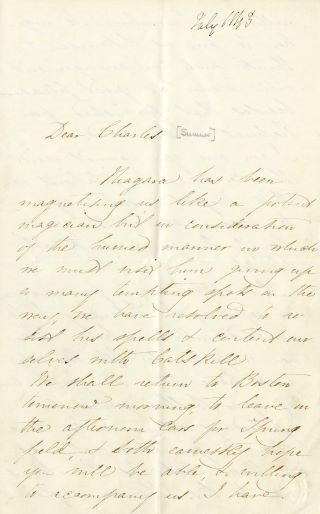 July 6th/43
Dear Charles [Sumner]
Niagara has been
magnetising us like a potent
magician but in consideration
of the hurried manner in which
we must visit him giving up
so many tempting spots on the
way, we have resolved to re-
sist his spells & content our
selves with Catskill
We shall return to Boston
tomorrow morning to leave in
the afternoon Cars for Spring
field, & both earnestly hope
you will be able, & willing
to accompany us. I have